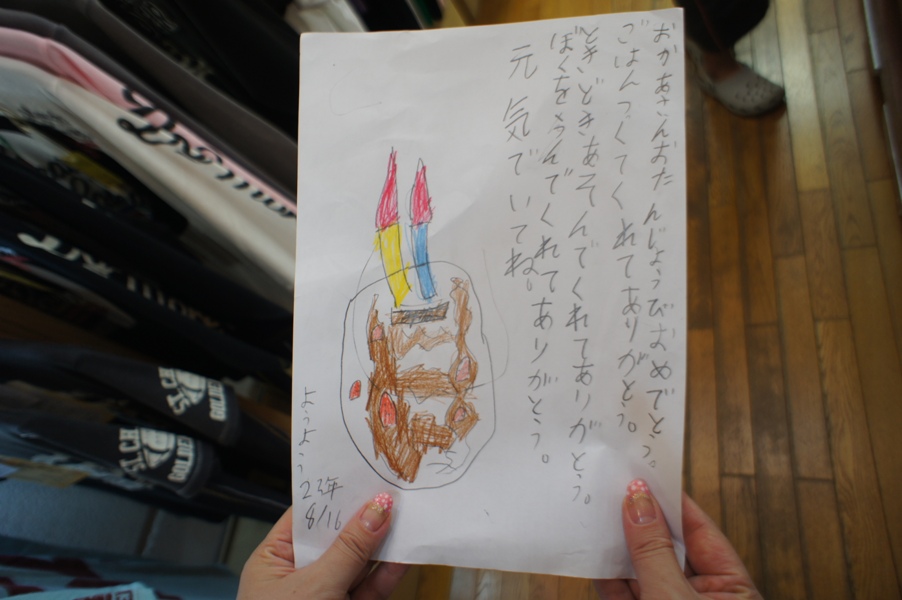 おかあさんおたんじょうびおめでとう。
ごはんつくてくれてありがとう。
ときどきあそんでくれてありがとう。
ぼくをうんでくれてありがとう。
元気でいてね。
ようよう 2年
8/16